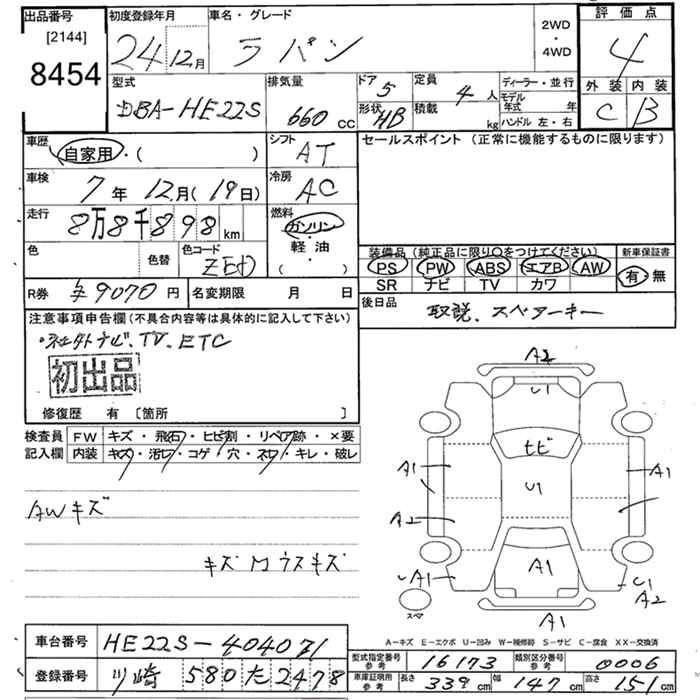 出品番号 初度登録年月 車名・グレード 2WD・4WD 評価点
[2144]
8454 24年12月 ラパン 4
型式 排気量 ドア 5 定員 4人 ディーラー・並行 外装 内装
DBA-HE22S 660cc 形状 HB 積載 kg モデル年式 年 C B
ハンドル 左・右
車歴 シフト セールスポイント (正常に機能するものに限ります)
自家用・( ) AT
車検 冷房
7年12月(19日) AC
走行 燃料
8万8千898km ガソリン
色 色替 色コード 軽・油 装備品 (純正品に限り○をつけてください) 新車保証書
( ・ ) PS PW ABS エアB AW 有・無
SR ナビ TV カワ
R券 9070円 名変期限 月 日 後日品
取説、スペアーキー
注意事項申告欄 (不具合内容等は具体的に記入して下さい)
・社外ナビ、TV、ETC
初出品
修復歴 有 [箇所 ]
検査員 FW キズ・飛石・ヒビ割・リペア跡・×要
記入欄 内装 キズ・汚レ・コゲ・穴・ネジ・キレ・破レ
AWキズ
キズMウスキズ
A2
U1
ヒビ
A1 A1
U1
A2
A1
A1 U1
A2
スペア A1
A-キズ E-エクボ U-凹み W-補修跡 S-サビ C-腐食 XX-交換済
車台番号 HE22S-404071
型式指定番号 参考 16173 類別区分番号 参考 0006
登録番号 川崎 580 た 2478
車庫証明用 参考 長さ 339cm 幅 147cm 高さ 151cm